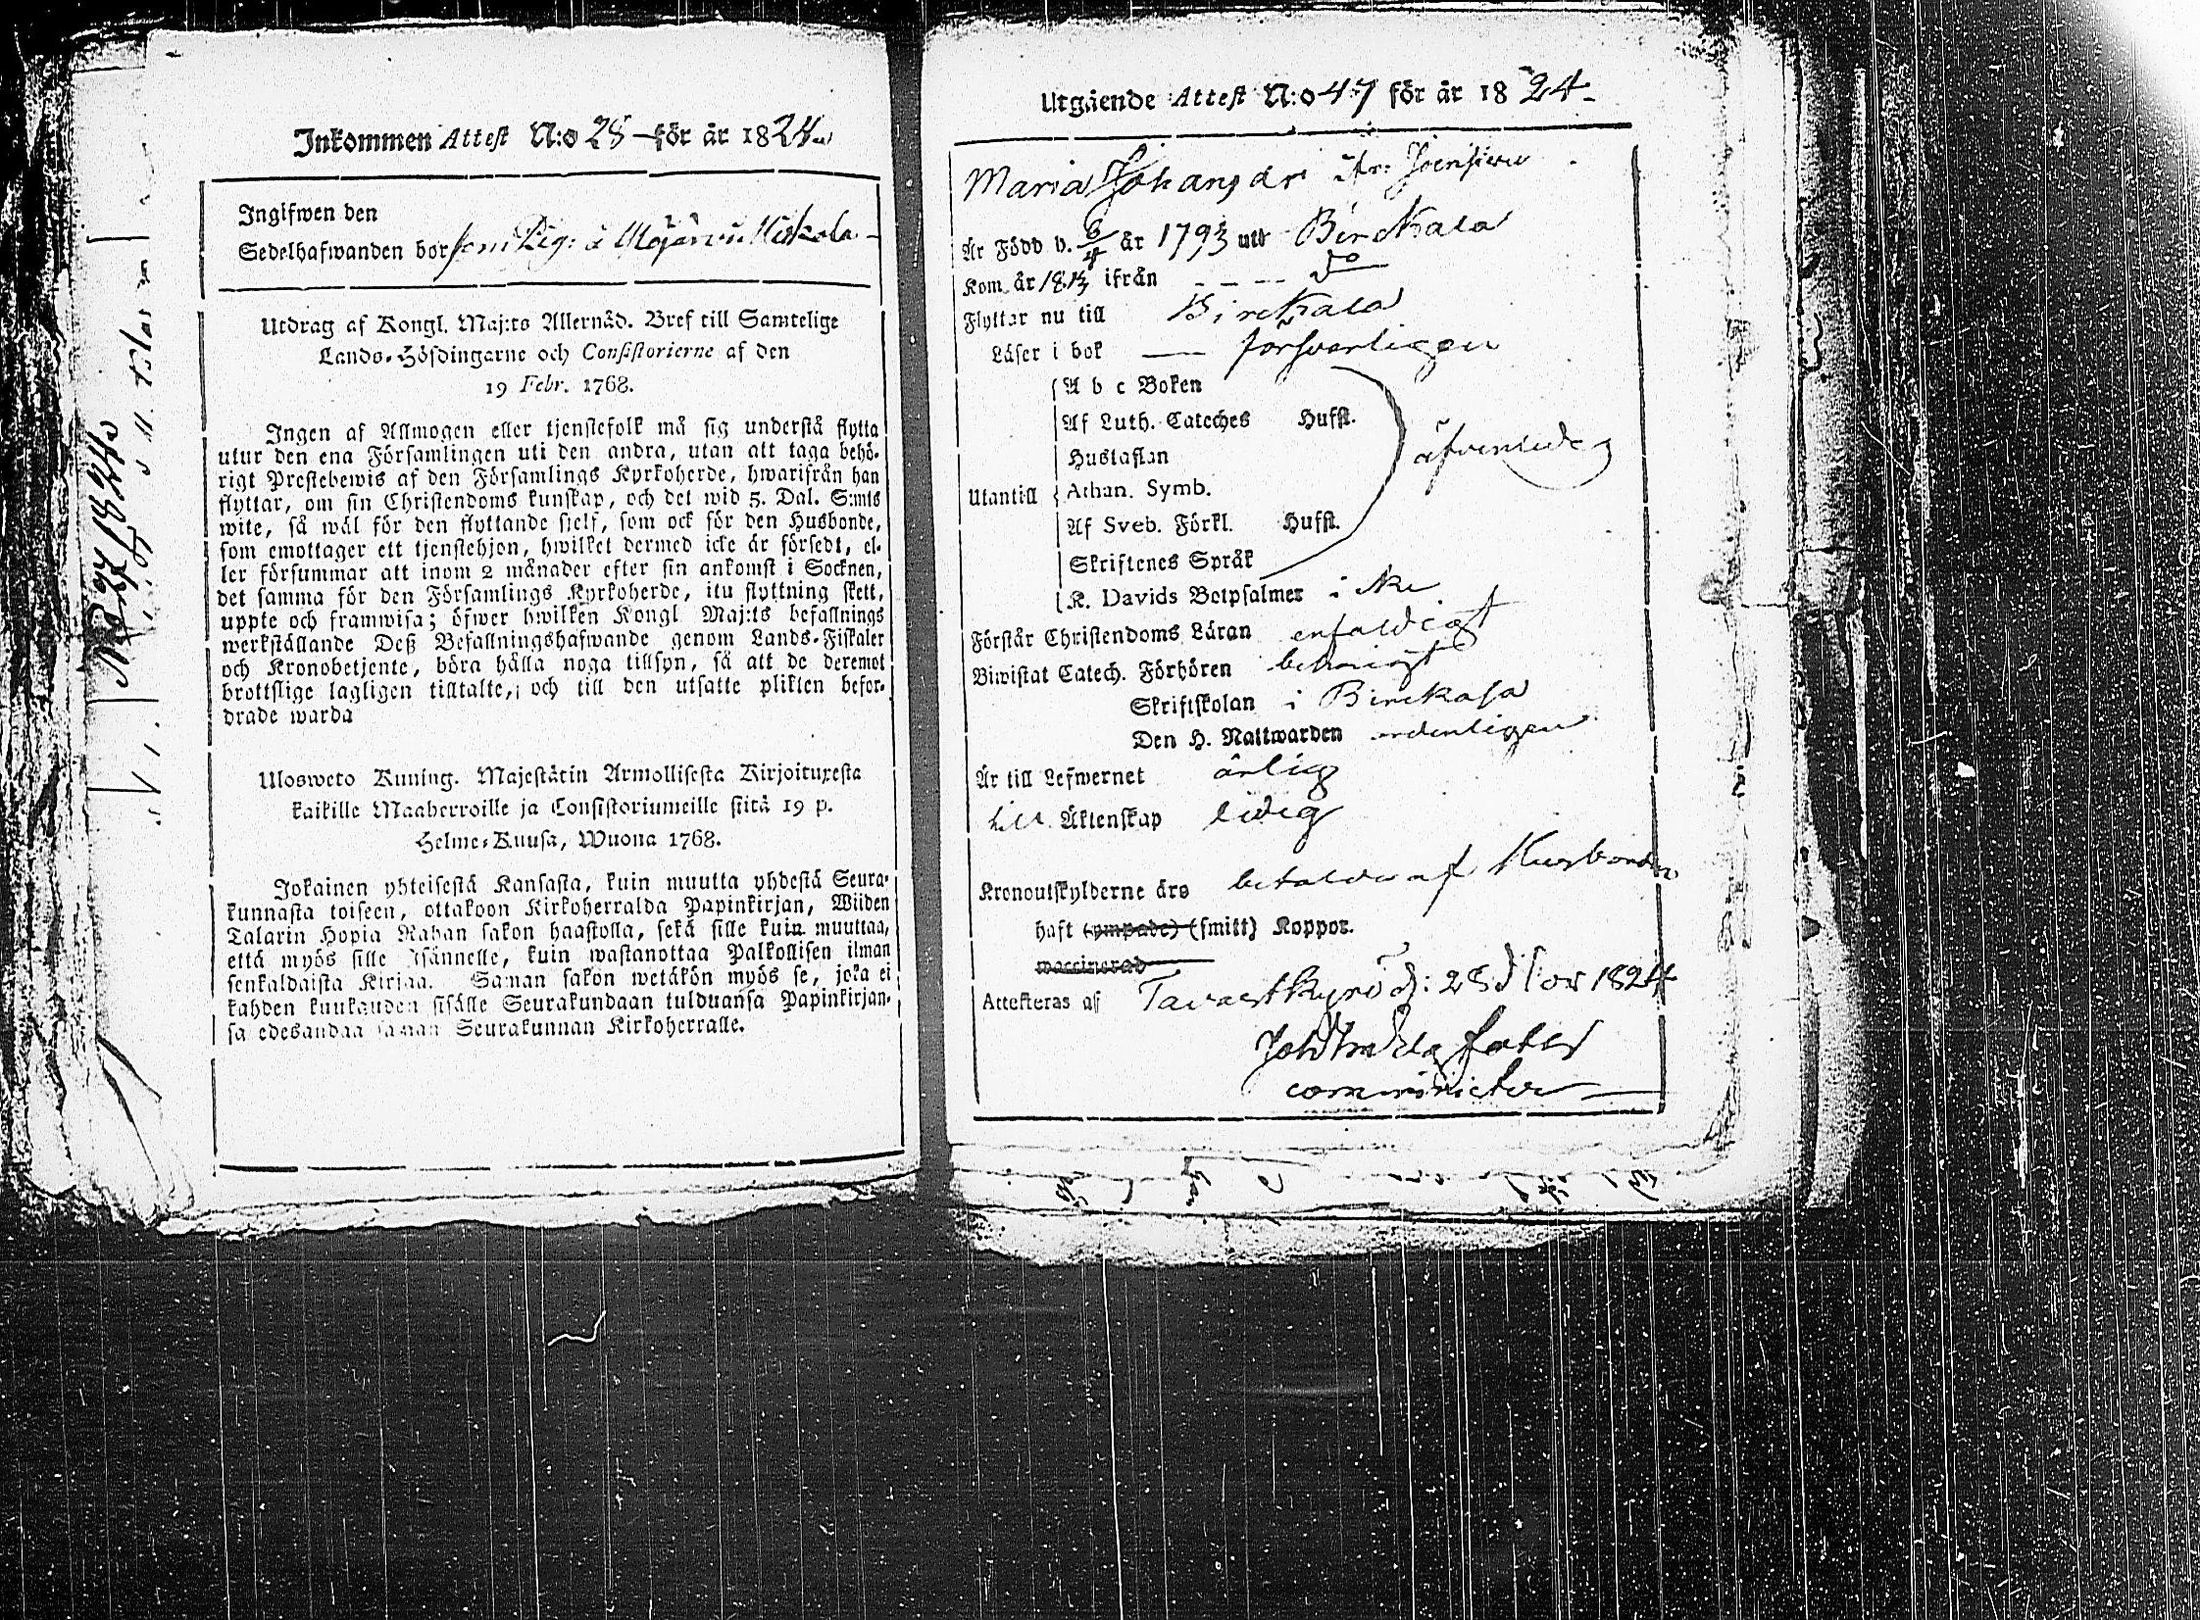 Inkommen Attest N:o 28 för år 1824
Ingifwen den
Sedelhafwanden bor som Pig: å
Utdrag af Kongl. Maj:ts Allernåd. Bref till Samtelige
Lands-Höfdingarne och Consistorierne af den
19 Febr. 1768.
Ingen af Allmogen eller tjenstefolk må sig understå flytta
utur den ena Församlingen uti den andra, utan att taga behö-
rigt Prestebewis af den Församlings Kyrkoherde, hwarifrån han
flyttar, om sin Christendoms kunskap, och det wid 5. Dal. S:mts
wite, så wäl för den flyttande sjelf, som ock för den Husbonde,
som emottager ett tjenstehjon, hwilket dermed icke är försedt, el-
ler försummar att inom 2 månader efter sin ankomst i Socknen,
det samma för den Församlings Kyrkoherde, itu flyttning skett,
uppte och framwisa; öfwer hwilken Kongl Maj:ts befallnings
werkställande Deß Befallningshafwande genom Lands-Fiskaler
och Kronobetjente, böra hålla noga tillsyn, så att de deremot
brottslige lagligen tilltalte, och till den utsatte plikten befor-
drade warda
Ulosweto Kuning. Majestätin Armollisesta Kirjoituxesta
kaikille Maaherroille ja Consistoriumeille siitä 19 p.
Helme-Kuusa, Wuona 1768.
Jokainen yhteisestä Kansasta, kuin muutta yhdestä Seura-
kunnasta toiseen, ottakoon Kirkoherralda Papinkirjan, Wiiden
Talarin Hopia Rahan sakon haastolla, sekä sille kuin muuttaa,
että myös sille Isännelle, kuin wastanottaa Palkollisen ilman
senkaldaista Kirjaa. Saman sakon wetäkön myös se, joka ei
kahden kuukauden sisälle Seurakundaan tulduansa Papinkirjan-
sa edesandaa saman Seurakunnan Kirkoherralle.
Utgående Attest N:o 47 för år 1824
Maria Johansdr
Är Född d. 6/4 år 1793 uti Birckala
Kom år 1813 ifrån do
Flyttar nu till Birckala
Läser i bok försvarligen
A b c Boken
Af Luth. Cateches Hufst.
Hustaflan
Utantill Athan. Symb. äfvenledes
Af Sveb. Förkl. Hufst.
Skriftenes Språk
K. Davids Botpsalmer icke
Förstår Christendoms Läran enfaldigt
Biwistat Catech. Förhören behörigt
Skriftskolan i Birckala
Den H. Nattwarden ordentligen
Är till Lefwernet ärlig
till Äktenskap ledig
Kronoutskylderne äro betalde af Husbonden
haft (ympade) (smitt) Koppor.
waccinerad
Attesteras af Tavastkyrö d: 28 Nov 1824
comminister